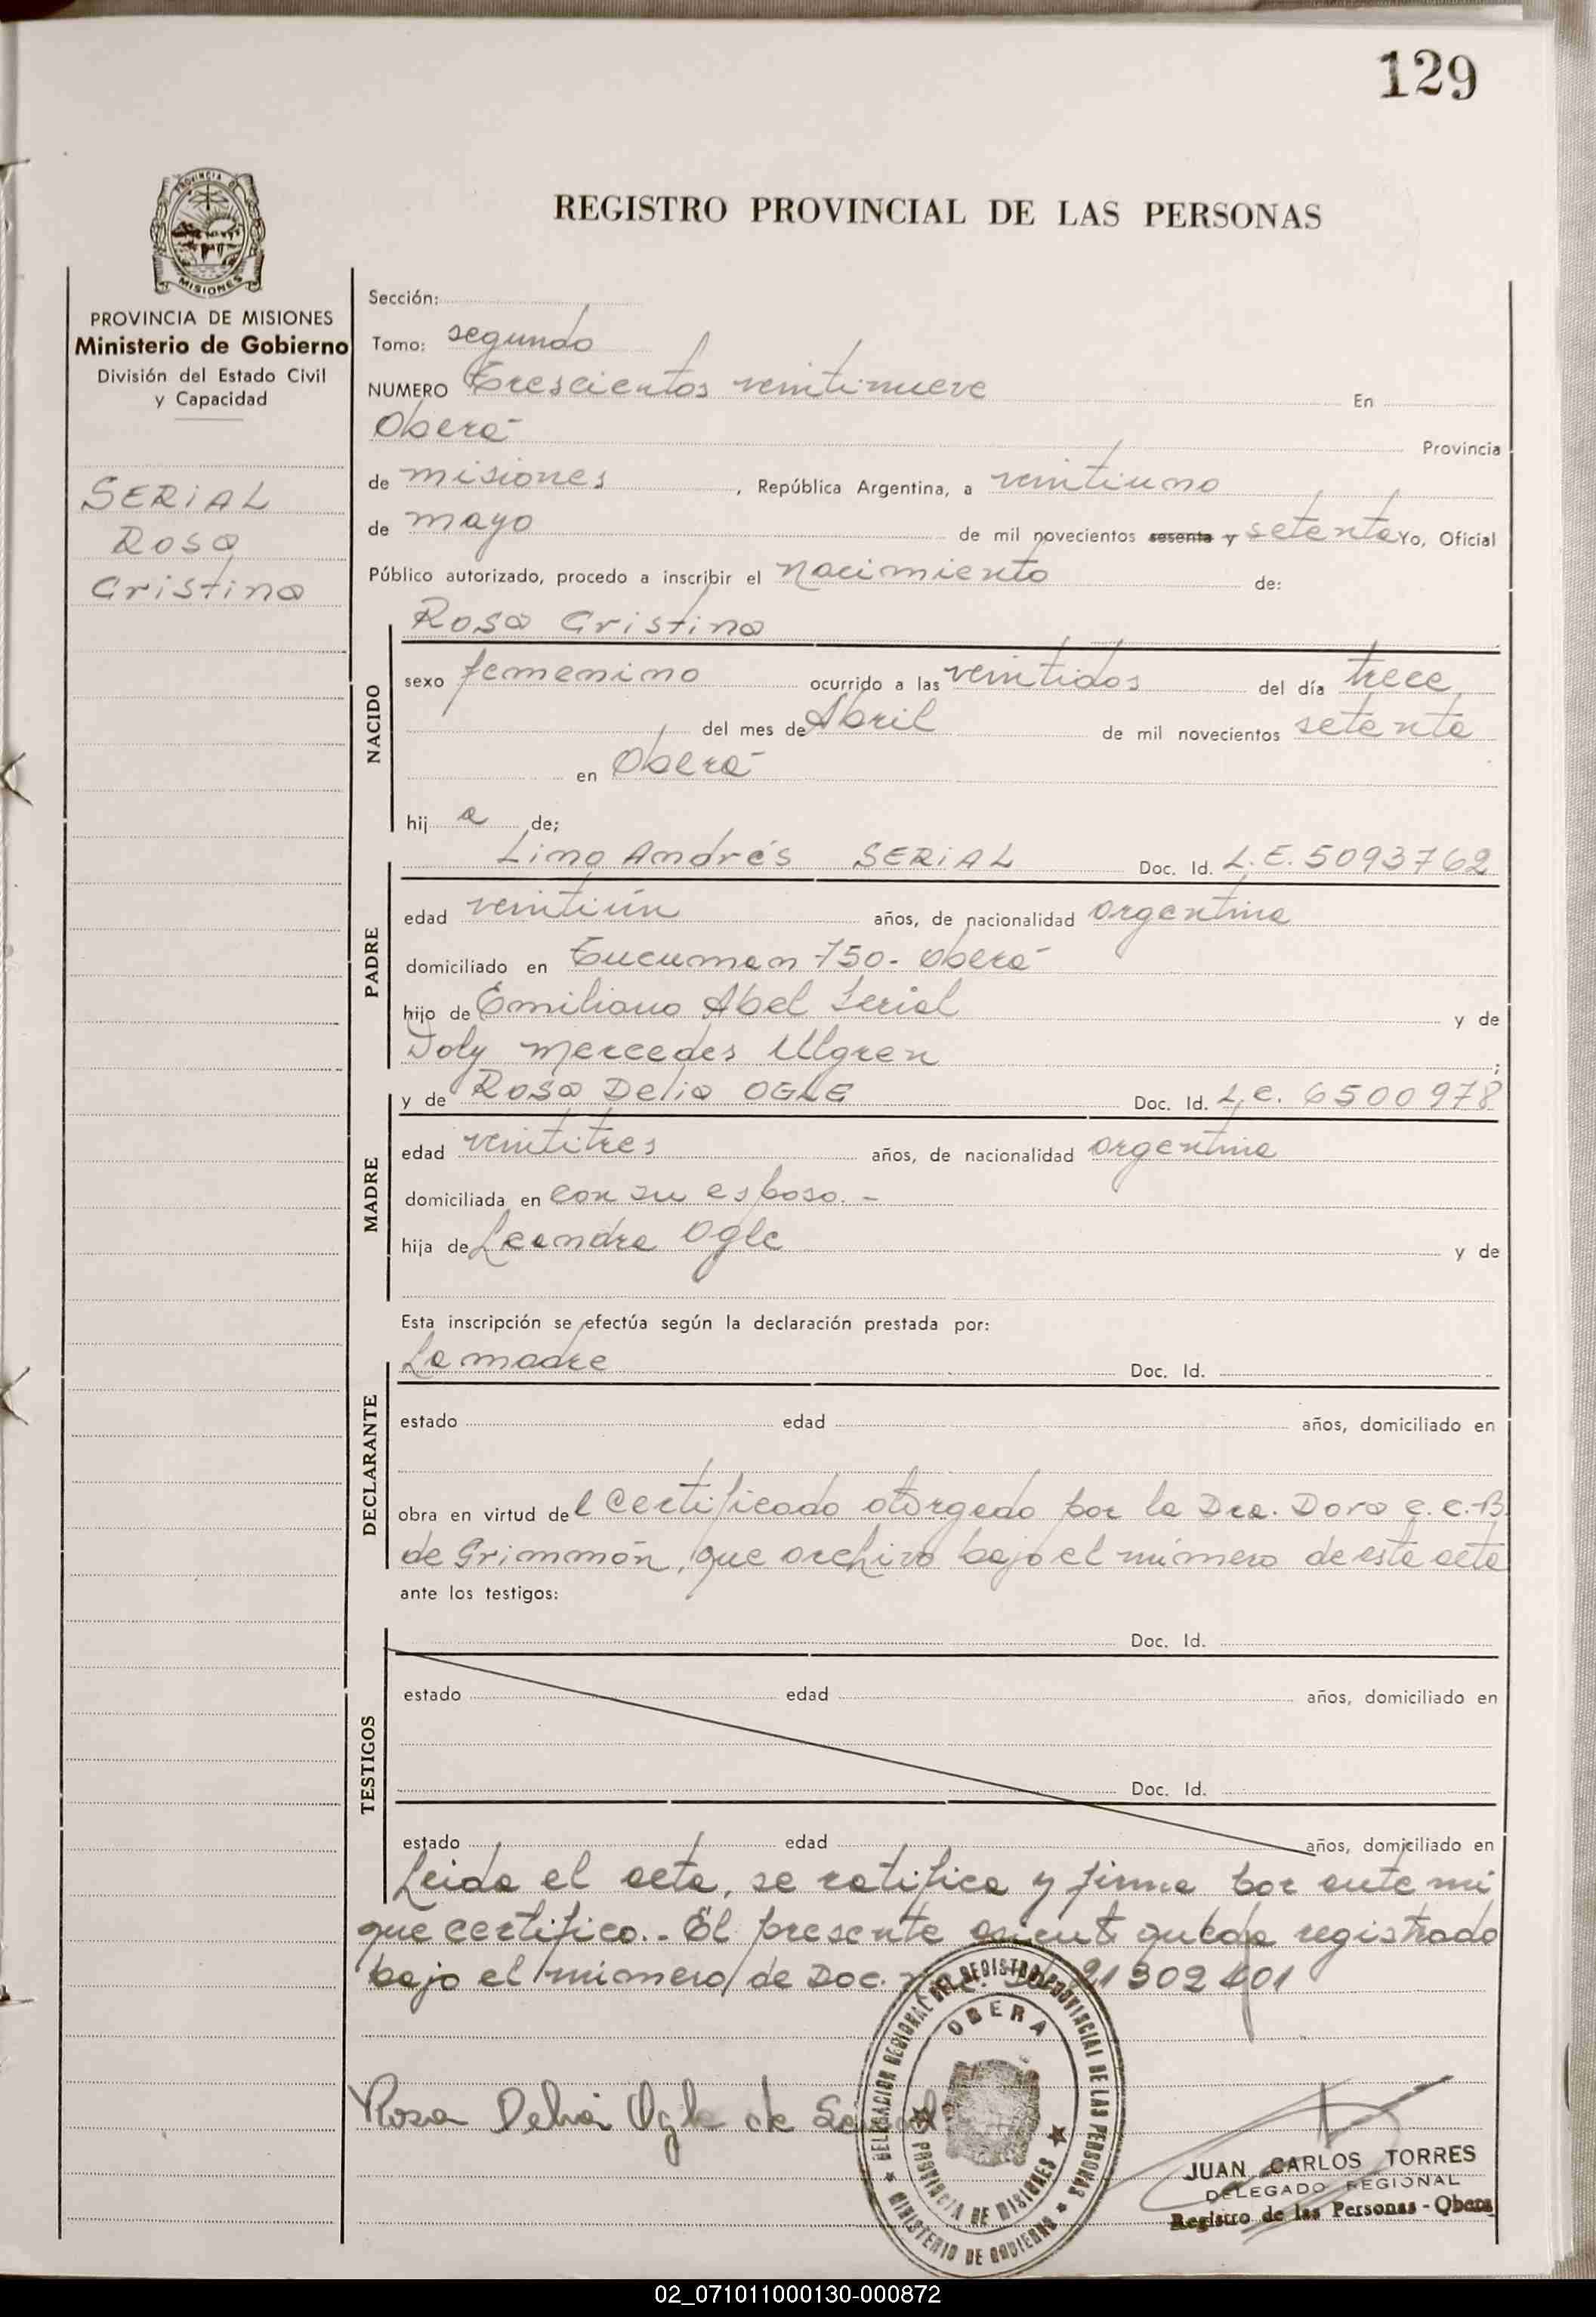 129
PROVINCIA DE
MISIONES
REGISTRO PROVINCIAL DE LAS PERSONAS
PROVINCIA DE MISIONES
Ministerio de Gobierno
División del Estado Civil
y Capacidad
SERIAL
Rosa
Cristina
Sección:
Tomo: segundo
NUMERO Trescientos veintinueve En
Oberá Provincia
de misiones, República Argentina, a veintiuno
de mayo de mil novecientos sesenta y setenta Yo, Oficial
Público autorizado, procedo a inscribir el nacimiento de:
NACIDO
Rosa Cristina
sexo femenino ocurrido a las veintidos del día trece
del mes de Abril de mil novecientos setenta
en Oberá
hij a de;
PADRE
Lino Andrés SERIAL Doc. Id. L.E. 5093762
edad veintiún años, de nacionalidad argentina
domiciliado en Tucuman 750 - Oberá
hijo de Emiliano Abel Serial y de
Doly Mercedes Ulgren ;
MADRE
y de Rosa Delia OGLE Doc. Id. L.C. 6500978
edad veintitres años, de nacionalidad argentina
domiciliada en con su esposo. -
hija de Leandra Ogle y de
Esta inscripción se efectúa según la declaración prestada por:
DECLARANTE
La madre Doc. Id.
estado edad años, domiciliado en
obra en virtud del Certificado otorgado por la Dra. Dora C. C. B.
de Grimmón, que archivo bajo el número de esta acta
ante los testigos:
TESTIGOS
Doc. Id.
estado edad años, domiciliado en
Doc. Id.
estado edad años, domiciliado en
Leida el acta, se ratifica y firma por ante mi
que certifico.- El presente asiento queda registrado
bajo el número de Doc. 21302401
Rosa Delia Ogle de Serial
DELEGACION REGIONAL DEL REGISTRO PROVINCIAL DE LAS PERSONAS
OBERA
PROVINCIA DE MISIONES
MINISTERIO DE GOBIERNO
JUAN CARLOS TORRES
DELEGADO REGIONAL
Registro de las Personas - Obera
02_071011000130-000872